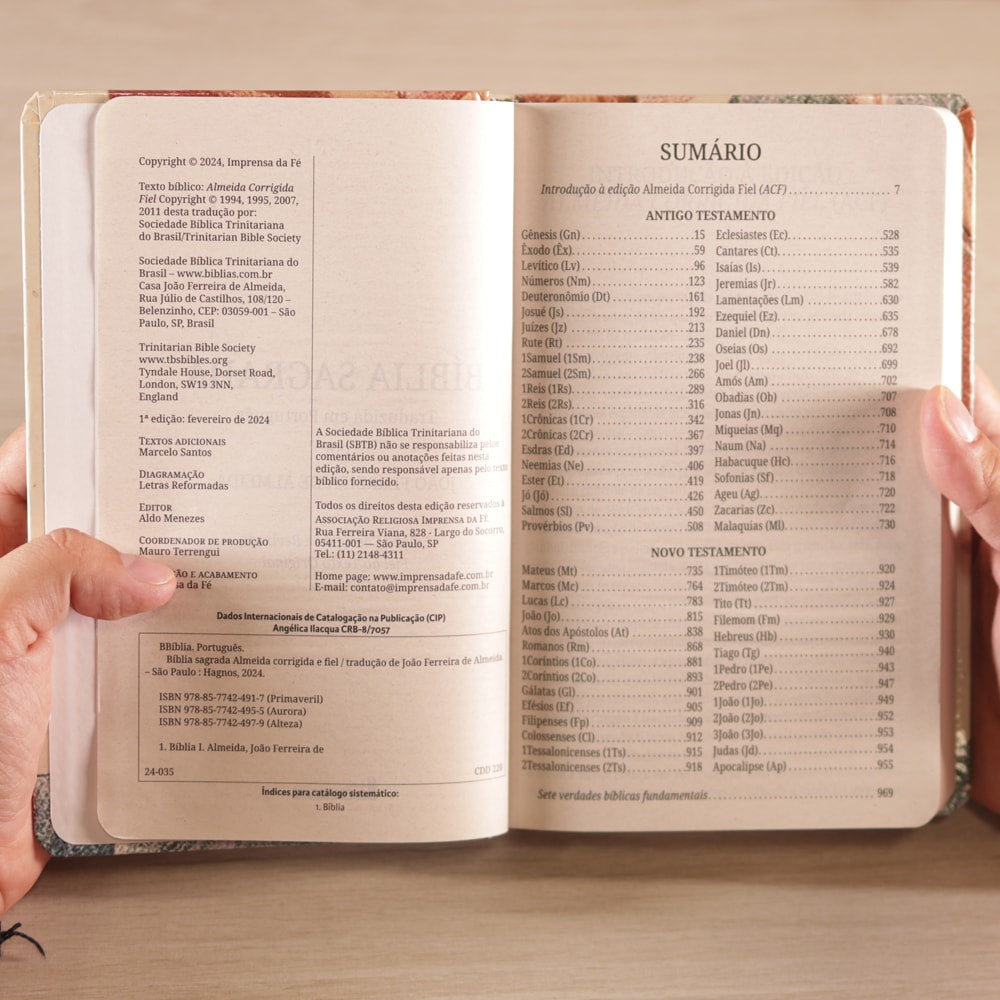 Copyright © 2024, Imprensa da Fé
Texto bíblico: Almeida Corrigida
Fiel Copyright © 1994, 1995, 2007,
2011 desta tradução por:
Sociedade Bíblica Trinitariana
do Brasil/Trinitarian Bible Society
Sociedade Bíblica Trinitariana do
Brasil – www.biblias.com.br
Casa João Ferreira de Almeida,
Rua Júlio de Castilhos, 108/120 –
Belenzinho, CEP: 03059-001 – São
Paulo, SP, Brasil
Trinitarian Bible Society
www.tbsbibles.org
Tyndale House, Dorset Road,
London, SW19 3NN,
England
1ª edição: fevereiro de 2024
TEXTOS ADICIONAIS
Marcelo Santos
DIAGRAMAÇÃO
Letras Reformadas
EDITOR
Aldo Menezes
COORDENADOR DE PRODUÇÃO
Mauro Terrengui
E ACABAMENTO
da Fé
A Sociedade Bíblica Trinitariana do
Brasil (SBTB) não se responsabiliza pelos
comentários ou anotações feitas nesta
edição, sendo responsável apenas pelo texto
bíblico fornecido.
Todos os direitos desta edição reservados à
ASSOCIAÇÃO RELIGIOSA IMPRENSA DA FÉ
Rua Ferreira Viana, 828 - Largo do Socorro,
05411-001 — São Paulo, SP
Tel.: (11) 2148-4311
Home page: www.imprensadafe.com.br
E-mail: contato@imprensadafe.com.br
Dados Internacionais de Catalogação na Publicação (CIP)
Angélica Ilacqua CRB-8/7057
BBíblia. Português.
Bíblia sagrada Almeida corrigida e fiel / tradução de João Ferreira de Almeida.
– São Paulo : Hagnos, 2024.
ISBN 978-85-7742-491-7 (Primaveril)
ISBN 978-85-7742-495-5 (Aurora)
ISBN 978-85-7742-497-9 (Alteza)
1. Bíblia I. Almeida, João Ferreira de
24-035 CDD 220
Índices para catálogo sistemático:
1. Bíblia
SUMÁRIO
Introdução à edição Almeida Corrigida Fiel (ACF) 7
ANTIGO TESTAMENTO
Gênesis (Gn) 15
Êxodo (Êx) 59
Levítico (Lv) 96
Números (Nm) 123
Deuteronômio (Dt) 161
Josué (Js) 192
Juízes (Jz) 213
Rute (Rt) 235
1Samuel (1Sm) 238
2Samuel (2Sm) 266
1Reis (1Rs) 289
2Reis (2Rs) 316
1Crônicas (1Cr) 342
2Crônicas (2Cr) 367
Esdras (Ed) 397
Neemias (Ne) 406
Ester (Et) 419
Jó (Jó) 426
Salmos (Sl) 450
Provérbios (Pv) 508
Eclesiastes (Ec) 528
Cantares (Ct) 535
Isaías (Is) 539
Jeremias (Jr) 582
Lamentações (Lm) 630
Ezequiel (Ez) 635
Daniel (Dn) 678
Oseias (Os) 692
Joel (Jl) 699
Amós (Am) 702
Obadias (Ob) 707
Jonas (Jn) 708
Miqueias (Mq) 710
Naum (Na) 714
Habacuque (Hc) 716
Sofonias (Sf) 718
Ageu (Ag) 720
Zacarias (Zc) 722
Malaquias (Ml) 730
NOVO TESTAMENTO
Mateus (Mt) 735
Marcos (Mc) 764
Lucas (Lc) 783
João (Jo) 815
Atos dos Apóstolos (At) 838
Romanos (Rm) 868
1Coríntios (1Co) 881
2Coríntios (2Co) 893
Gálatas (Gl) 901
Efésios (Ef) 905
Filipenses (Fp) 909
Colossenses (Cl) 912
1Tessalonicenses (1Ts) 915
2Tessalonicenses (2Ts) 918
1Timóteo (1Tm) 920
2Timóteo (2Tm) 924
Tito (Tt) 927
Filemom (Fm) 929
Hebreus (Hb) 930
Tiago (Tg) 940
1Pedro (1Pe) 943
2Pedro (2Pe) 947
1João (1Jo) 949
2João (2Jo) 952
3João (3Jo) 953
Judas (Jd) 954
Apocalipse (Ap) 955
Sete verdades bíblicas fundamentais 969